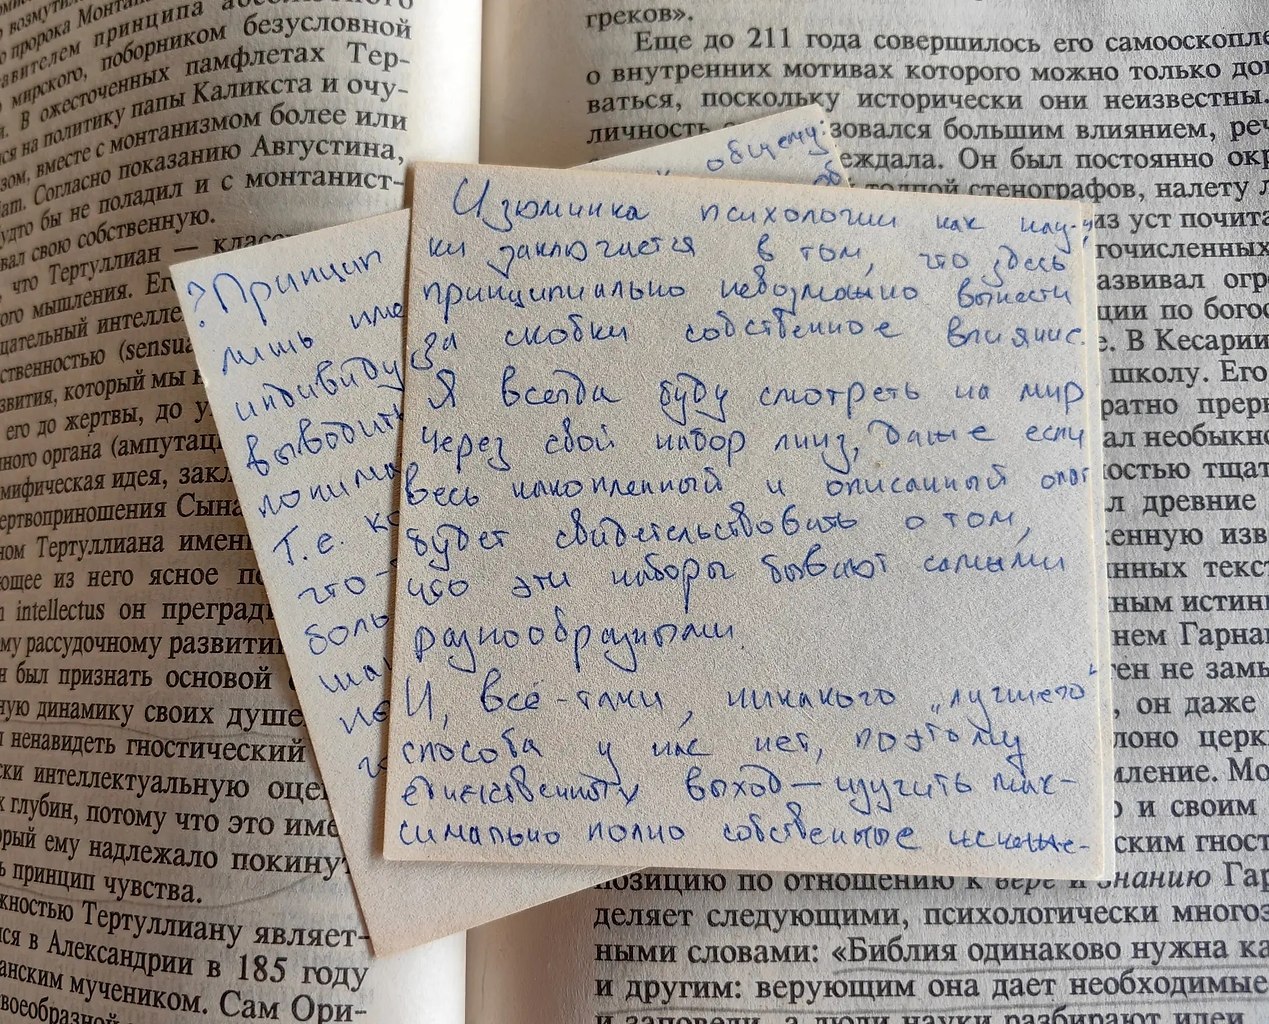 возмутил
пророка Монтан
авителем принципа абсолютного
мирского, поборником безусловной
и. В ожесточенных памфлетах Тер-
ся на политику папы Каликста и очу-
зом, вместе с монтанизмом более или
Согласно показанию Августина,
удто бы не поладил и с монтанист-
вал свою собственную.
что Тертуллиан — класс
ого мышления. Ег
цательный интелле
ственностью (sensua
звития, который мы н
его до жертвы, до у
ного органа (ампутац
мифическая идея, закл
ертвоприношения Сына
ном Тертуллиана имен
ющее из него ясное по
intellectus он преград
му рассудочному развити
н был признать основой
ную динамику своих душе
ненавидеть гностический
ски интеллектуальную оце
х глубин, потому что это име
орый ему надлежало покинут
ь принцип чувства.
жностью Тертуллиану являет-
ся в Александрии в 185 году
анским мучеником. Сам Ори-
воеобразной
? Принцип
лишь име
индивиду
выводить
понима
Т.е. ко
что-
боль
общему
Изюминка психологии как нау-
ки заключается в том, что здесь
принципиально невозможно вынести
за скобки собственное влияние.
Я всегда буду смотреть на мир
через свой набор линз, даже если
весь накопленный и описанный опыт
будет свидетельствовать о том,
что эти наборы бывают самыми
разнообразными.
И, всё-таки, никакого „лучшего“
способа у нас нет, поэтому
единственный выход — изучить мак-
симально полно собственные искаже-
греков».
Еще до 211 года совершилось его самооскопле
о внутренних мотивах которого можно только дог
ваться, поскольку исторически они неизвестны.
личность зовался большим влиянием, реч
еждала. Он был постоянно окр
толпой стенографов, налету л
из уст почита
гочисленных
азвивал огро
ции по богос
е. В Кесарии
школу. Его
ратно прерь
ал необыкно
ностью тщат
л древние
женную изв
нных текст
ным истин
нем Гарна
тен не замы
, он даже
лоно церк
мление. Мо
о и своим
ским гност
позицию по отношению к вере и знанию Гар
деляет следующими, психологически многоз
ными словами: «Библия одинаково нужна ка
и другим: верующим она дает необходимые
и заповеди, а люди науки разбирают идеи